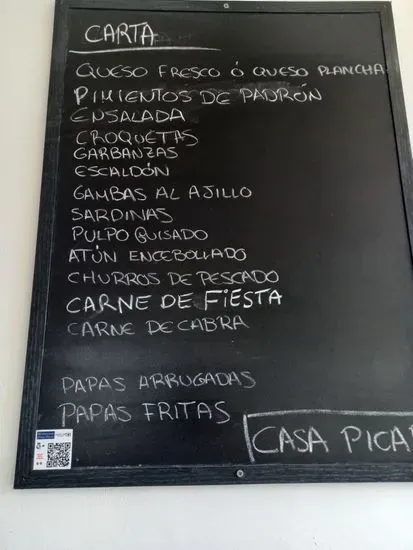 CARTA
QUESO FRESCO Ó QUESO PLANCHA
PIMIENTOS DE PADRÓN
ENSALADA
CROQUETAS
GARBANZAS
ESCALDÓN
GAMBAS AL AJILLO
SARDINAS
PULPO GUISADO
ATÚN ENCEBOLLADO
CHURROS DE PESCADO
CARNE DE FiESTA
CARNE DE CABRA
PAPAS ARRUGADAS
PAPAS FRITAS
CASA PICA